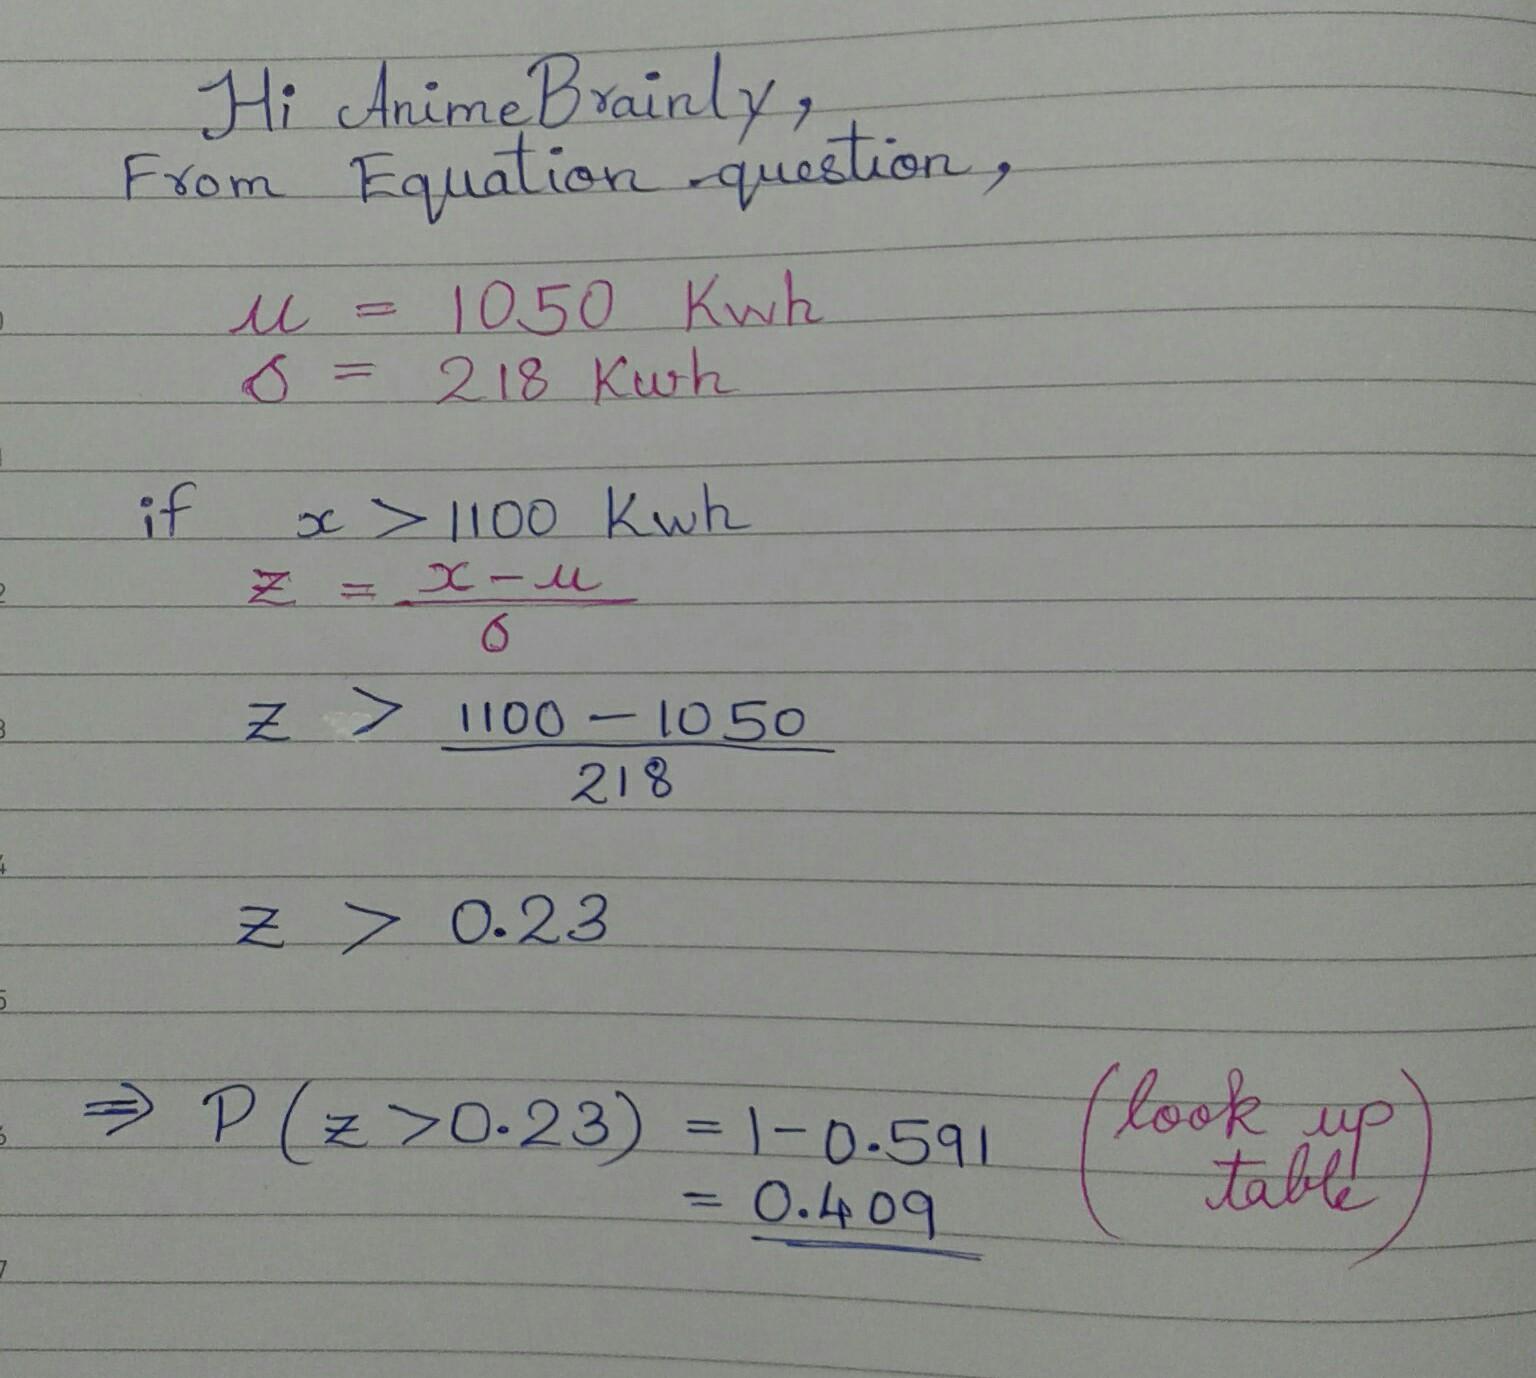 Hi AnimeBrainly,
From Equation question,
μ = 1050 Kwh
σ = 218 Kwh
if x > 1100 Kwh
z = x - μ
σ
z > 1100 - 1050
218
z > 0.23
⇒ P(z > 0.23) = 1 - 0.591 (look up
= 0.409 table)